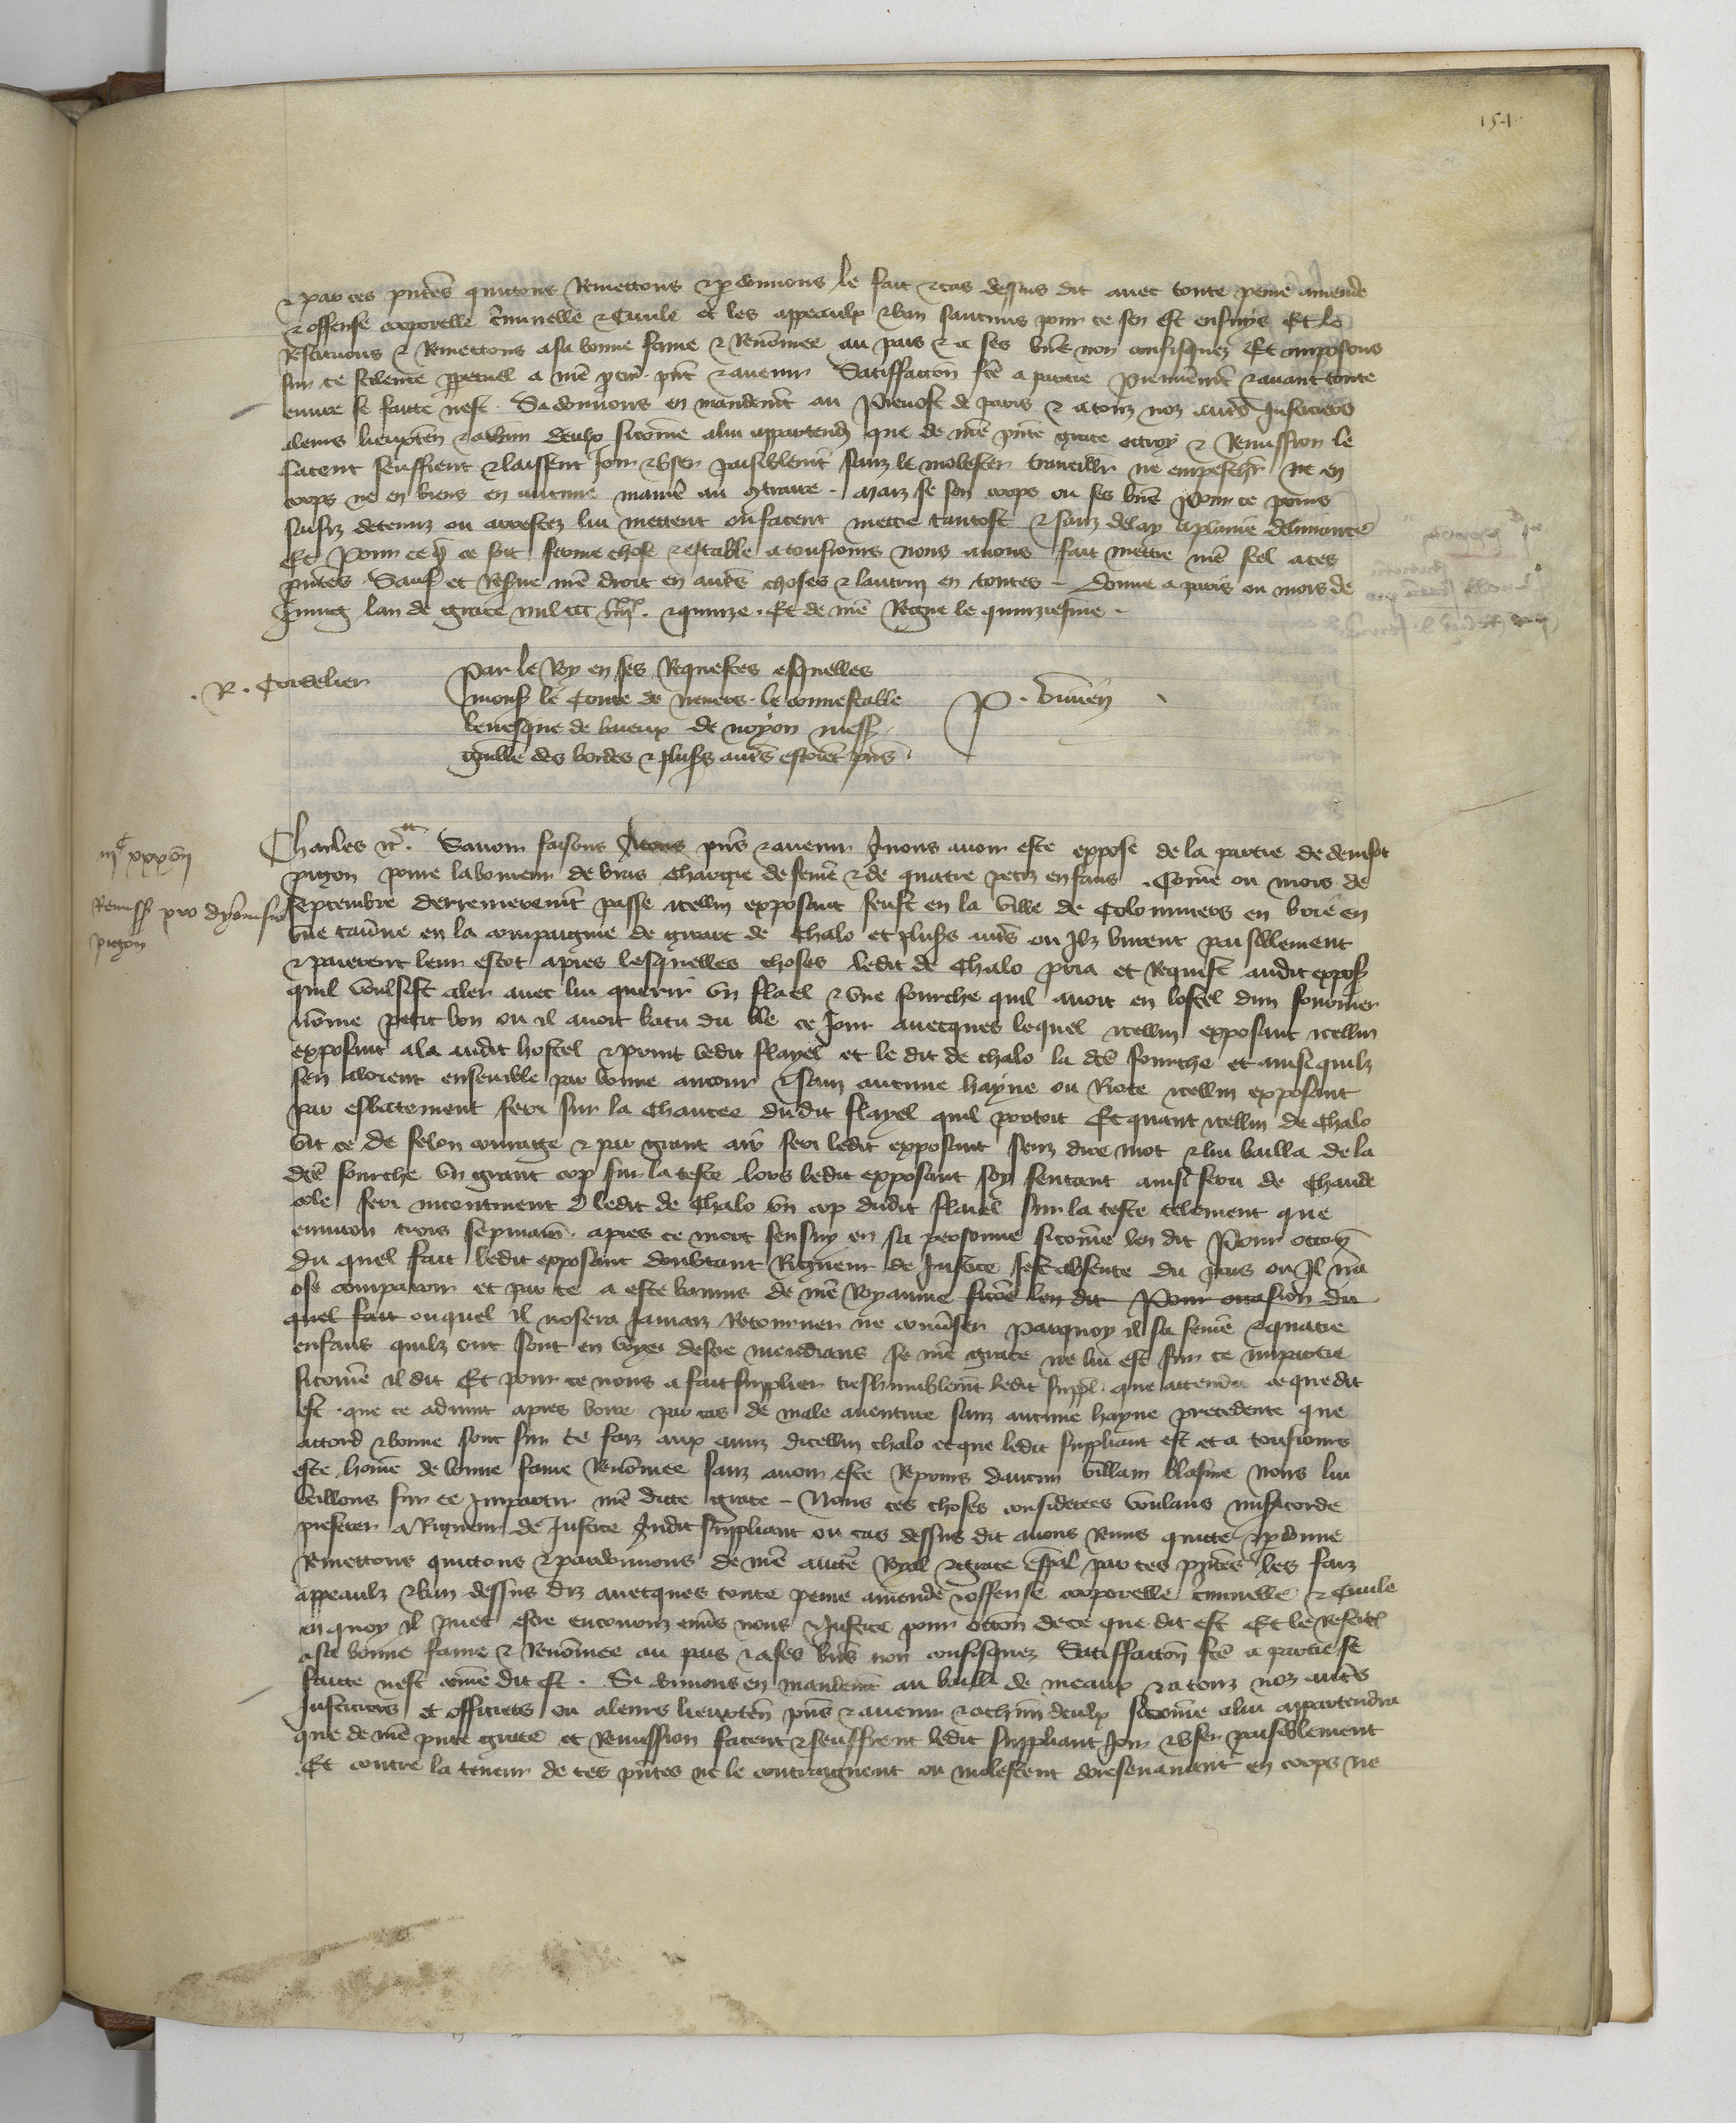 154
& par ces pñtes quictons Remettons & pdonnons le fait & cas dessus dit avec toute peine amende
& offense corporelle cminelle & Civile et les appeaulx & ban saucuns pour ce sen est ensuys Et le
Restituons & Remettons a sa bonne fame & Renōmee au pais & a ses biēs non confisquez Et imposons
sur ce scilence ppetuel a nrē pcur pñt & avenir Satiffaccōn fcē a partie premierēmt & avant toute
euvre se faicte nest . Si donnons en mandemēt au Prevost de paris & a touz noz autrēs Justiciers
a leurs lieuxtēn & a chūn deulx sicōme a lui appartendr que de nrē pñte grace octroy & Remission le
facent seuffrent & laissent Joir & user paisiblemēt sanz le molester travailler ne empescher ne en
corps ne en biens en aucune maniē au gtraire . Maiz se son corps ou ses biēs pour ce prins
saisiz detenuz ou arrestez lui mettent ou facent mettre tantost & sanz delay a plaine delivrance
Et pour ce q̄ ce soit ferme chose & estable a tousiours nous avons fait mettre nrē seel a ces
pñtes . Sauf et Reserve nrē droit en autrēs choses & lautruy en toutes – Donne a paris ou mois de
Juing lan de grace mil ccc iiiixx . & quinze . Et de nrē Regne le quinziesme .
. R . Cordelier
Par le Roy en ses Requestes esquelles
mons̄ le Conte de Nevers . le connestable
levesque de baieux de noyon mess̄
Guillē des bordes & pluss̄ autrēs estoiēt pñs
P .
iijc xxxvij
Remiss̄ pro dyonisio
pigon
Charles &c̄ . Savoir faisons a tous pñs & avenir A nous avoir este expose de la partie de denisot
pigon povre laboureur de bras Chargie de femē & de quatre petiz enfans . Cōme ou mois de
Septembre derrenieremēt passe icellui exposant feust en la ville de Colommiers en brie en
une tav̄ne en la compaignie de girart de Chalo et pluss̄ autrēs ou Ilz burent paisiblement
& paierent leur escot apres lesquelles choses ledit de Chalo pria et Requist audit expos̄
quil voulsist aler avec lui querir un flael & une fourche quil avoit en lostel dun
nōme petit bon ou il avoit batu du ble ce Jour avecques lequel icellui exposant icellui
exposant ala audit hostel & print ledit flayel et le dit de chalo la dcē fourche et ainsi quilz
sen aloient ensemble par bonne amour & sanz aucune hayne ou Riote icellui exposant
par esbatement feri sur la Chaucee dudit flayel quil portoit Et quant icellui de Chalo
vit ce de felon courage & par grant air feri ledit exposant senz dire mot & lui bailla de la
dcē fourche un grant cop sur la teste lors ledit exposant soy sentant ainsi feru de Chaude
cole feri incontinent ledit de Chalo un cop dudit flaiel sur la teste telement que
environ trois sepmain̄ . apres ce mort sensuy en sa personne sicōme len dit Pour occōn
du quel fait ledit exposant doubtant Rigueur de Justice sest absente du pais ou Il na
ose comparoir et par ce a este bannis de nrē Royaume sicōe len dit Pour occasion du
quel fait ouquel il nosera Jamaiz Retourner ne convser parquoy il sa femē & quatre
enfans quilz ont sont en voye destre mendians se nrē grace ne lui est sur ce impartie
sicōme il dit Et pour ce nous a fait supplier tres humblemēt ledit suppl̄ . que attendu ce que dit
est . que ce advint apres boire par cas de male aventure sanz aucune hayne precedente que
accord & bonne sont sur ce faiz aux amis dicellui chalo et que ledit suppliant est et a tousiours
este home de bonne fame Renōmee sanz avoir este Reprins daucun villain blasme Nous lui
veillons sur ce Impartir nrē dicte grace – Nous ces choses considerees voulans miscorde
preferer a Rigueur de Justice Audit suppliant ou cas dessus dit avons Remis quicte & pdonne
Remettons quictons & pardonnons de nrē auctē Royal & grace esp̄al par ces pñtes les faiz
appeaulx & ban dessus diz avecques toute peine amende & offense corporelle cminelle & Civile
en quoy il puet estre encouruz envs nous & Justice pour occōn de ce que dit est Et le Restit̄
a sa bonne fame & Renōmee au pais & a ses biēs non confisquez Satiffaccōn fcē a partie se
faicte nest cōme dit est . Si donnons en mandemēt au bailli de meaulx & a touz noz autrēs
Justiciers et officiers ou a leurs lieuxtēn pñs & avenir & a chūn deulx sicōme a lui appartendra
que de nrē pñte grace et Remission facent & seuffrent ledit suppliant Joir & user paisiblement
Et contre la teneur de ces pñtes ne le contraignent ou molestent doresenavant en corps ne